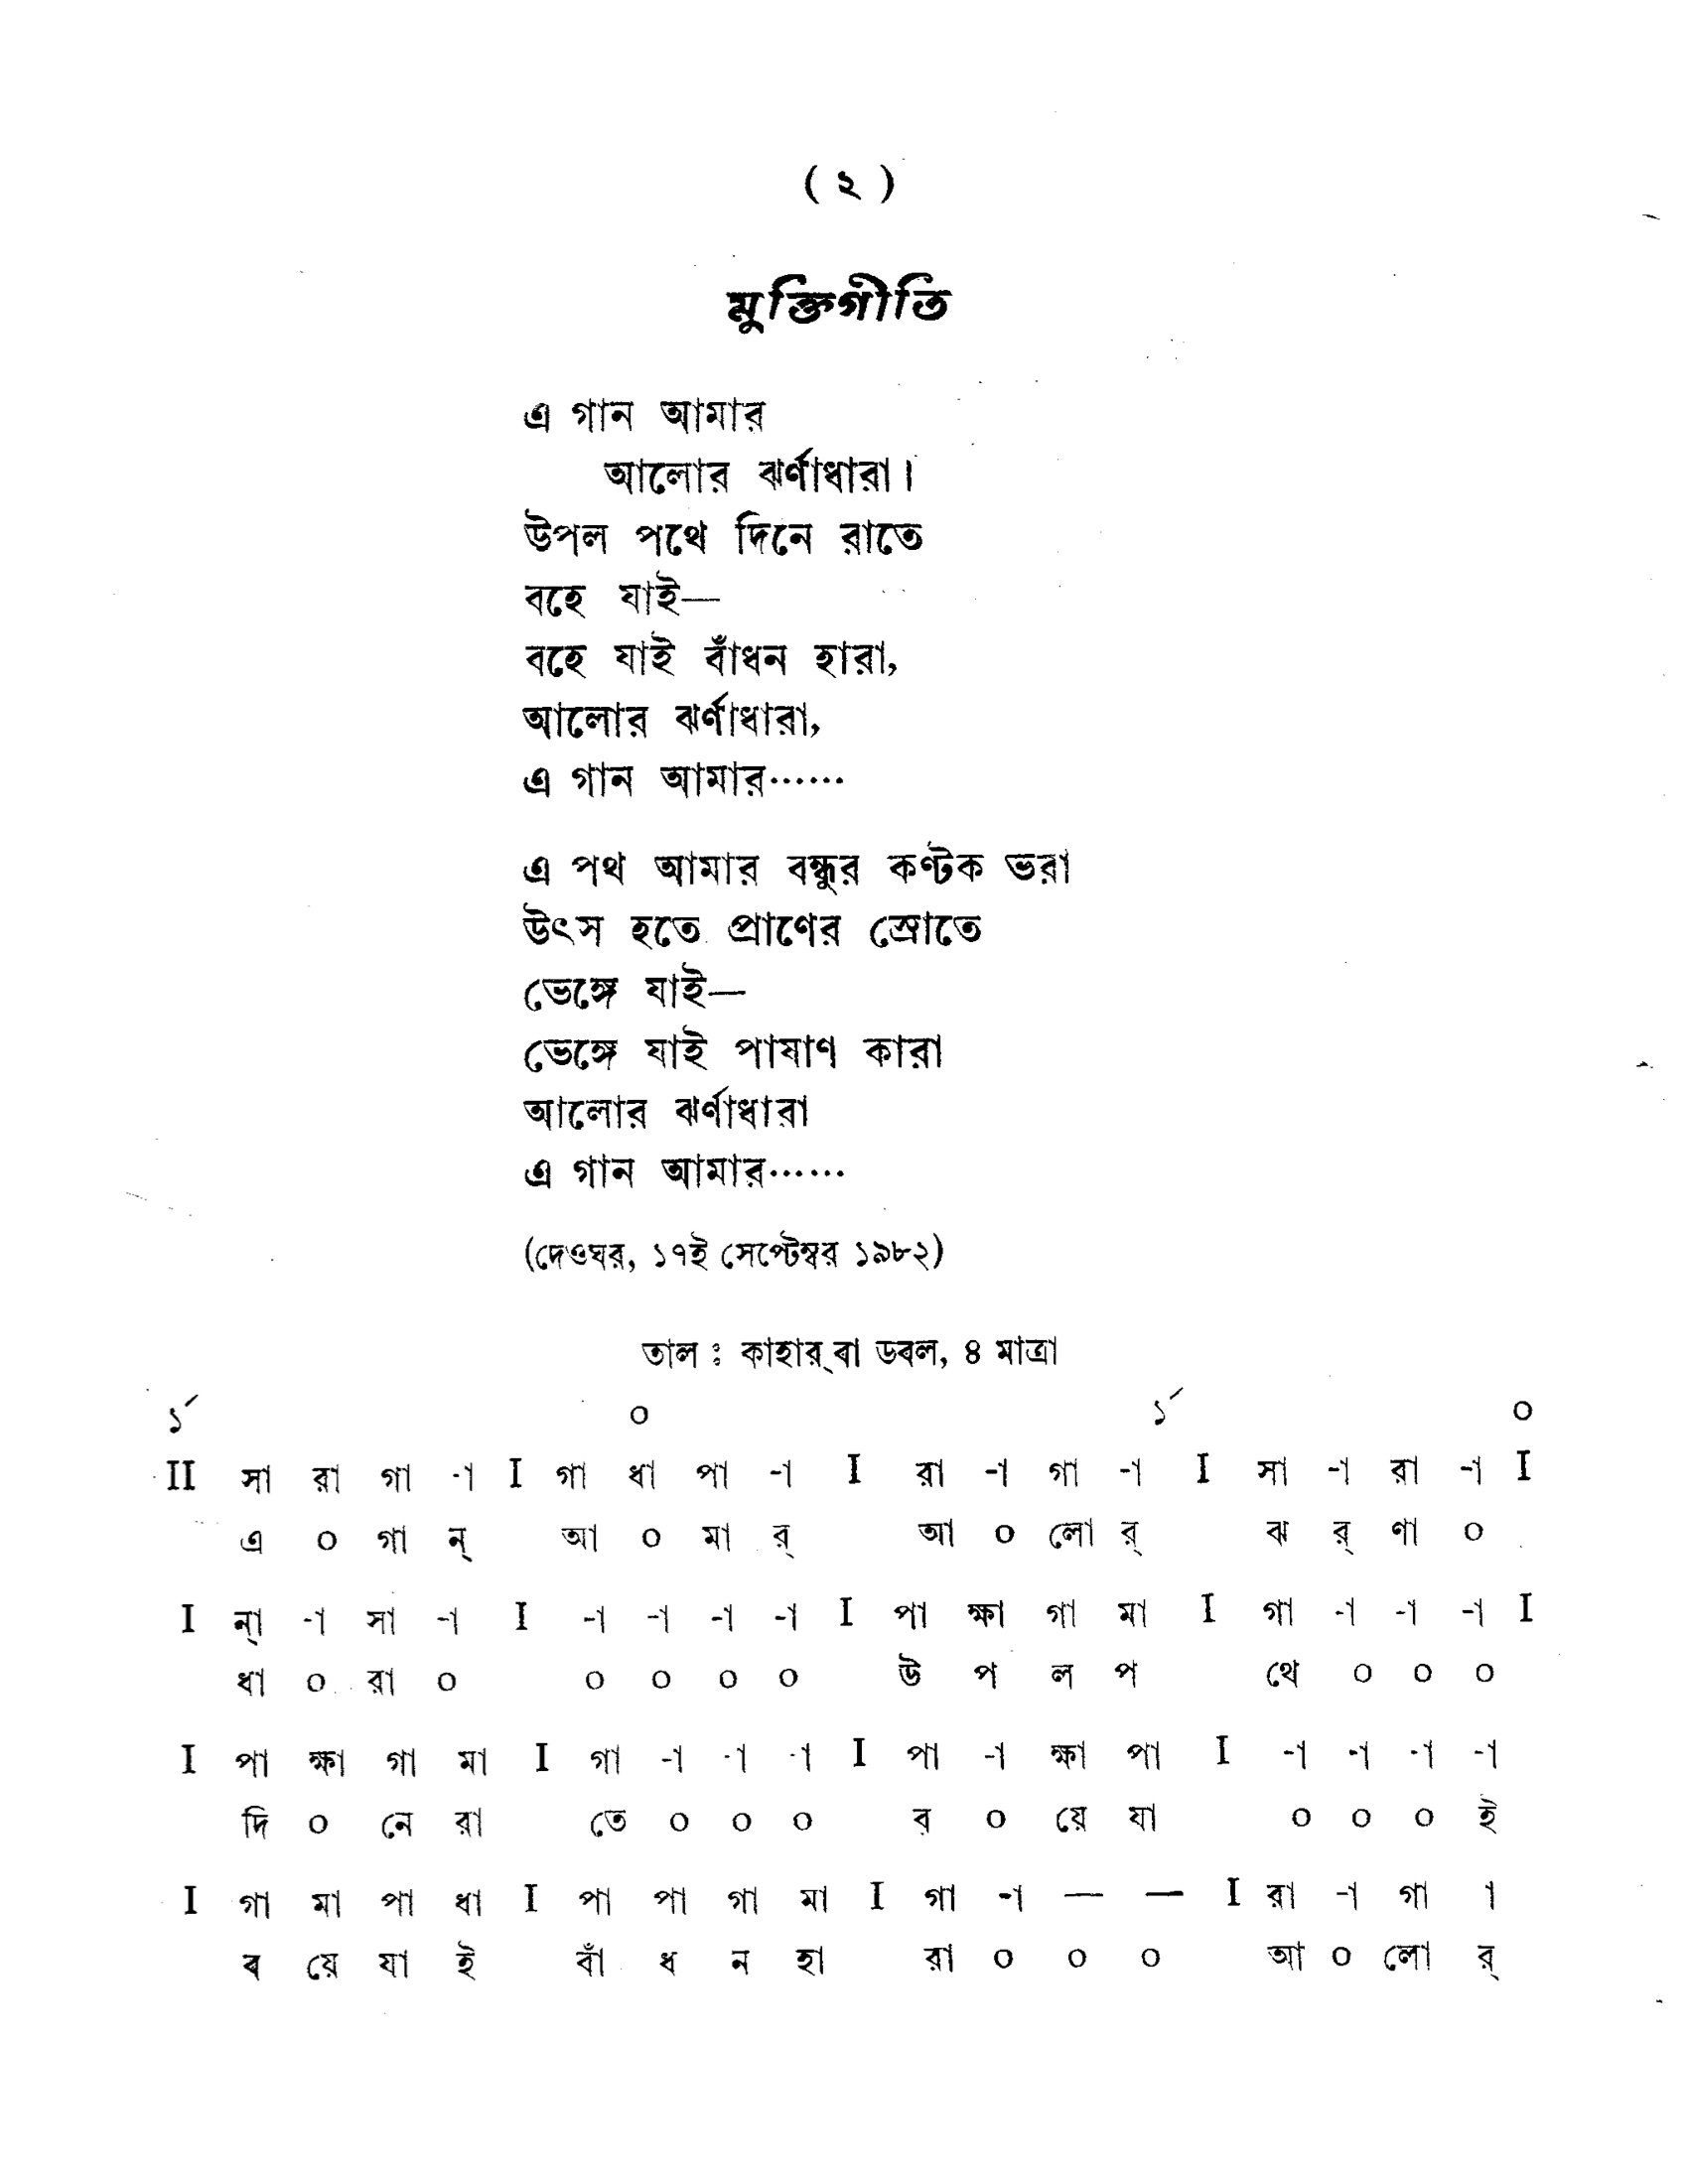 ( ২ )
মুক্তিগীতি
এ গান আমার
আলোর ঝর্ণাধারা।
উপল পথে দিনে রাতে
বহে যাই—
বহে যাই বাঁধন হারা,
আলোর ঝর্ণাধারা,
এ গান আমার······
এ পথ আমার বন্ধুর কণ্টক ভরা
উৎস হতে প্রাণের স্রোতে
ভেঙ্গে যাই—
ভেঙ্গে যাই পাষাণ কারা
আলোর ঝর্ণাধারা
এ গান আমার······
(দেওঘর, ১৭ই সেপ্টেম্বর ১৯৮২)
তাল : কাহার্‌বা ডবল, ৪ মাত্রা
১´ ০ ১´ ০
II সা রা গা -া I গা ধা পা -া I রা -া গা -া I সা -া রা -া I
এ ০ গা ন্ আ ০ মা র্ আ ০ লো র্ ঝ র্ ণা ০
I ন্া -া সা -া I -া -া -া -া I পা ক্ষা গা মা I গা -া -া -া I
ধা ০ রা ০ ০ ০ ০ ০ উ প ল প থে ০ ০ ০
I পা ক্ষা গা মা I গা -া -া -া I পা -া ক্ষা পা I -া -া -া -া
দি ০ নে রা তে ০ ০ ০ ব ০ য়ে যা ০ ০ ০ ই
I গা মা পা ধা I পা পা গা মা I গা -া — — I রা -া গা া
ব য়ে যা ই বাঁ ধ ন হা রা ০ ০ ০ আ ০ লো র্